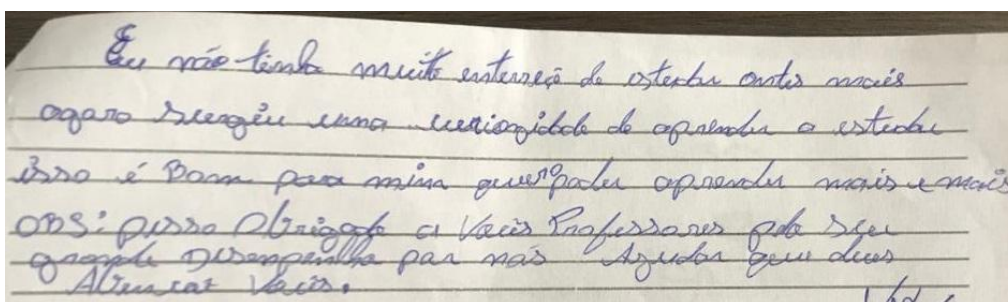 Eu não tinha muito enterseçõ de estudar antes mais
agaro surgiu uma curiozidade de aprender a estudar
isso é Bom para mim quero poder aprender mais e mais
OBS: pesso Obrigado a Vocês Professores pelo seu
grande Desempenho par nós Ajudar que deus
Abençoar Vocês.